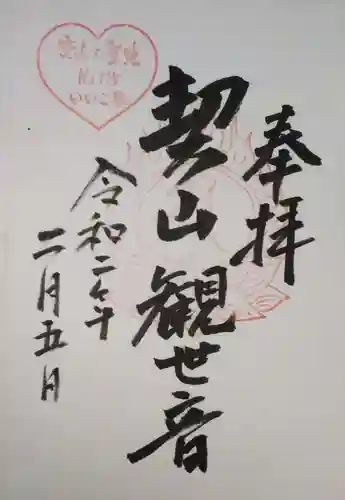 奉拝
契山観世音
令和二年
二月五日